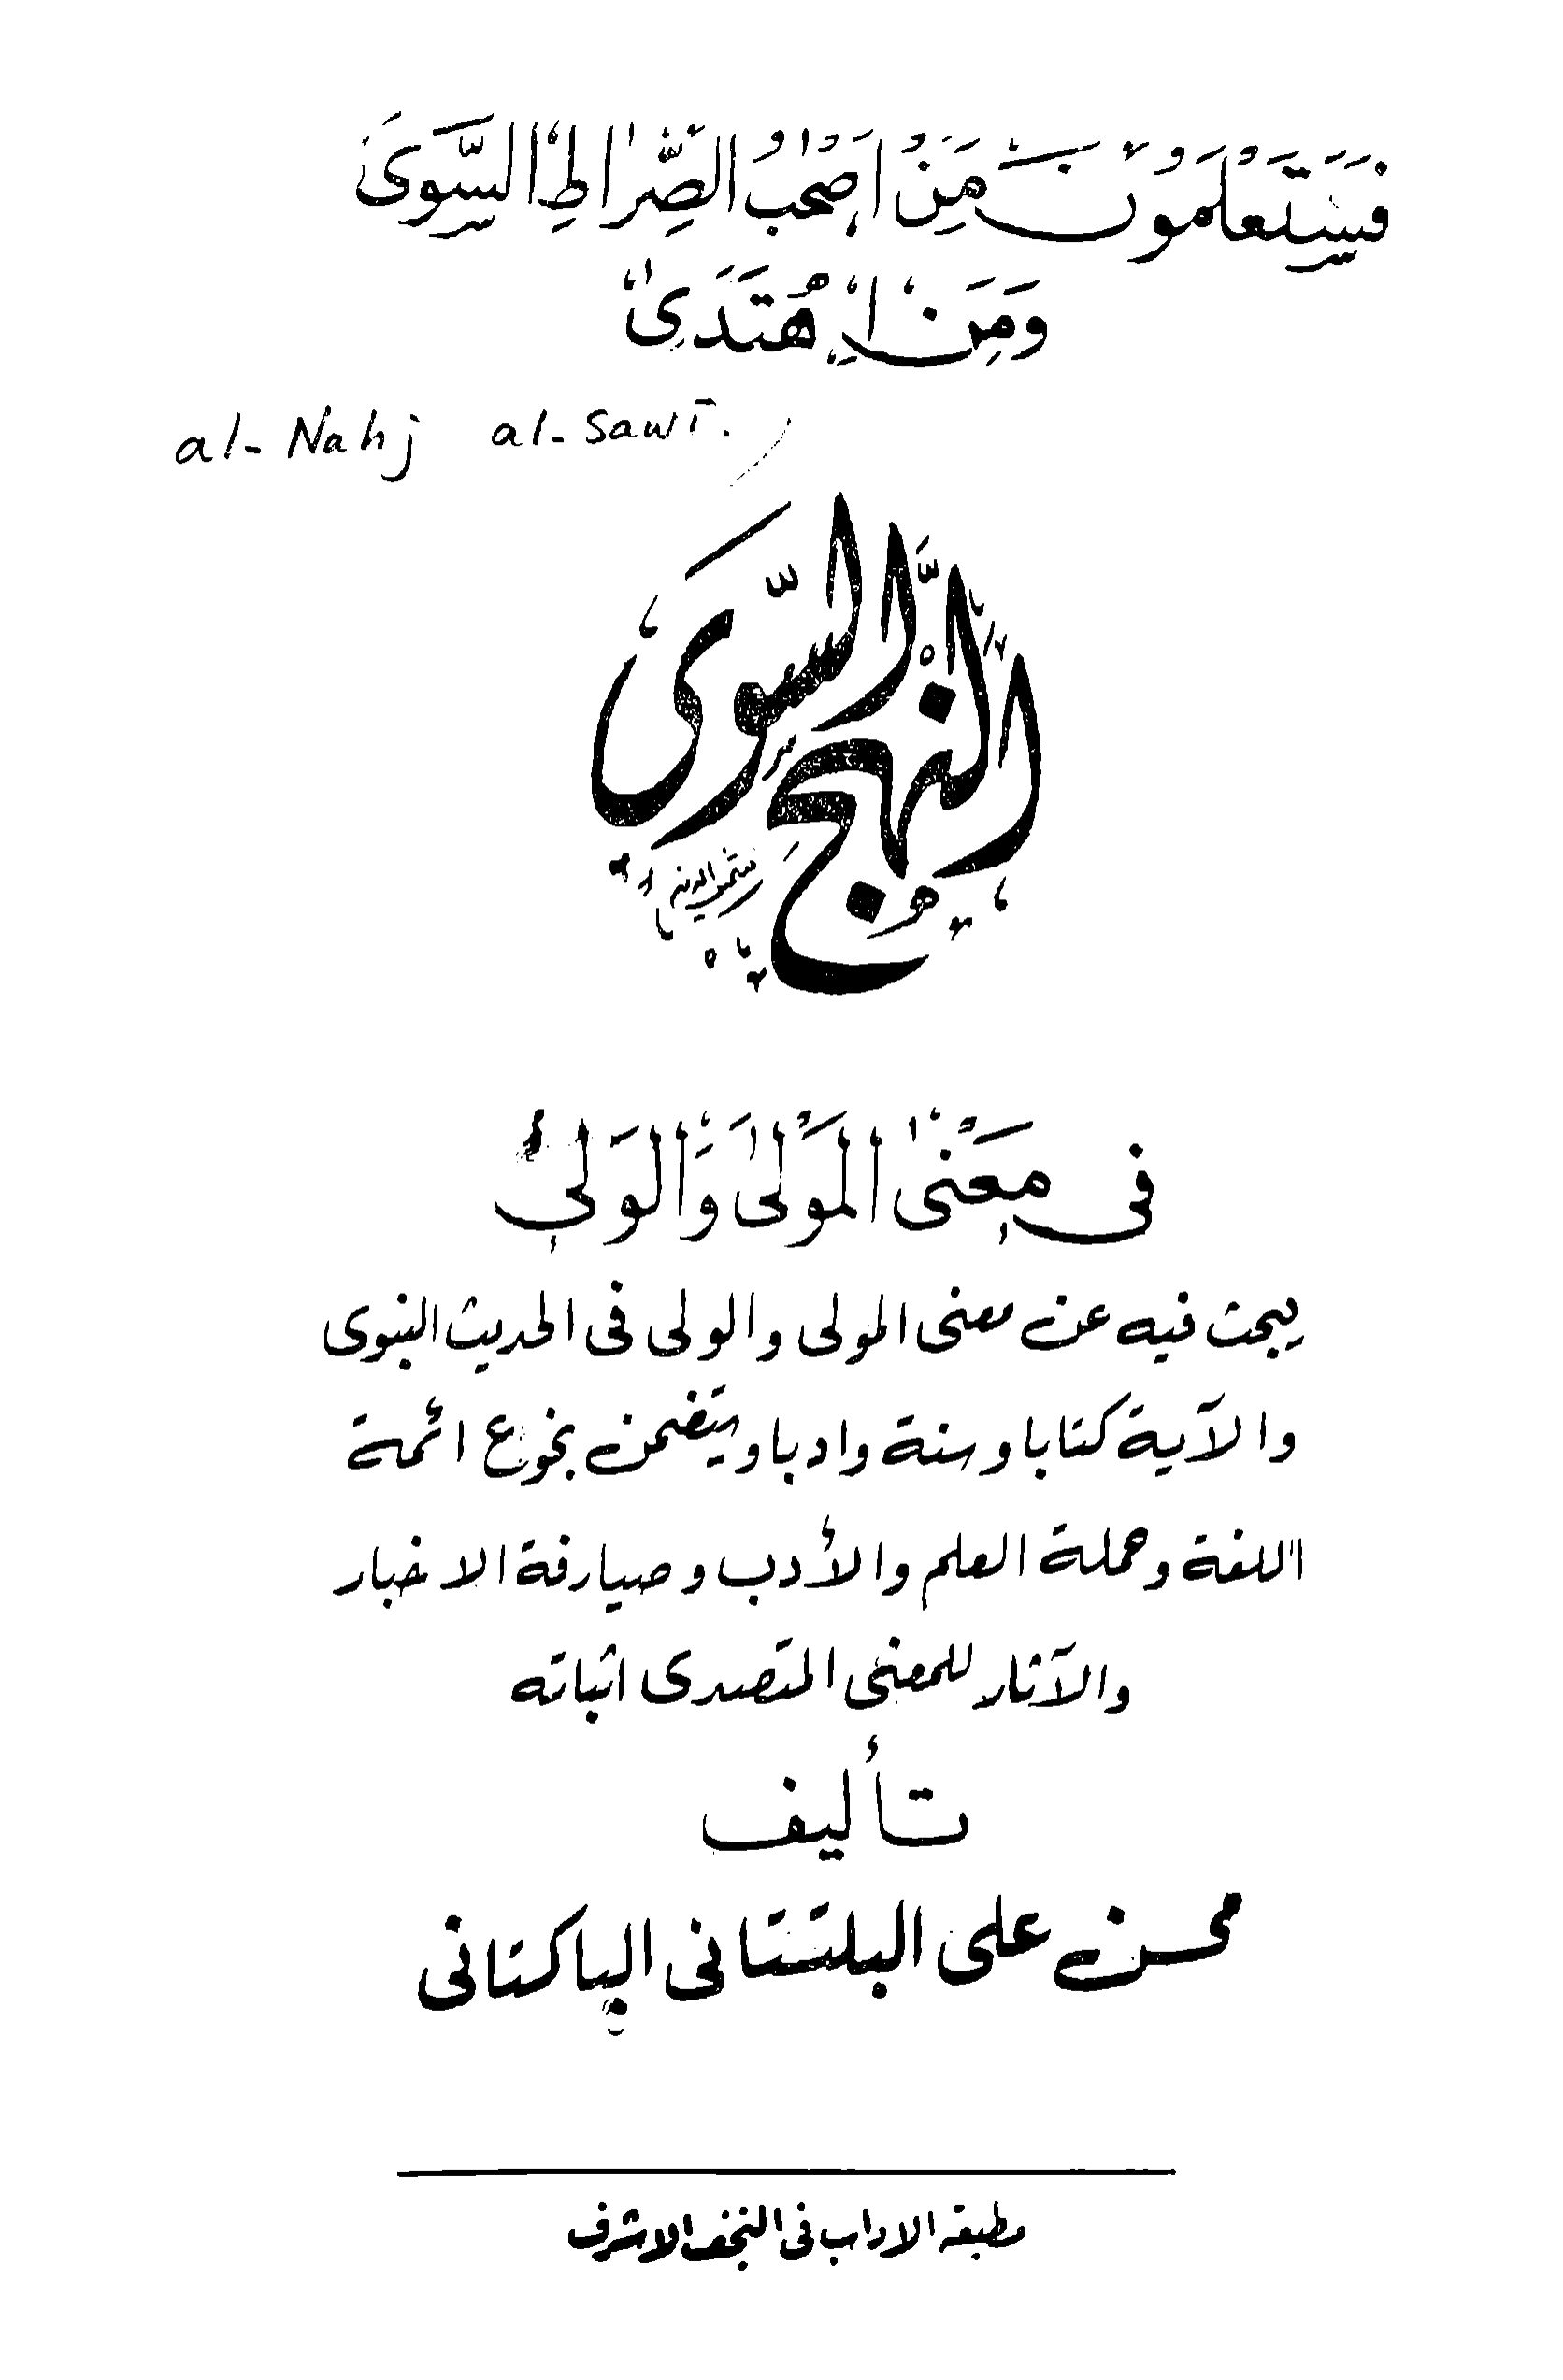 فَسَتَعْلَمُونَ مَنْ اَصْحٰبُ الصِّرٰاطِ السَّوِىِّ
وَمَنِ اهْتَدىٰ
al-Nahj al-Sawī.
النَّهْجُ السَّوِىُّ
فى مَعْنىٰ المَوْلىٰ وَالوَلىُّ
يبحث فيه عن معنى المولى والولى فى الحديث النبوى
والآية كتابا وسنة وادبا ويتضمن بخوع ائمة
اللغة وحملة العلم والأدب وصيارفة الاخبار
والآثار للمعنى المتصدى اثباته
تأليف
محسن على البلتستانى الپاكستانى
مطبعة الاداب فى النجف الاشرف